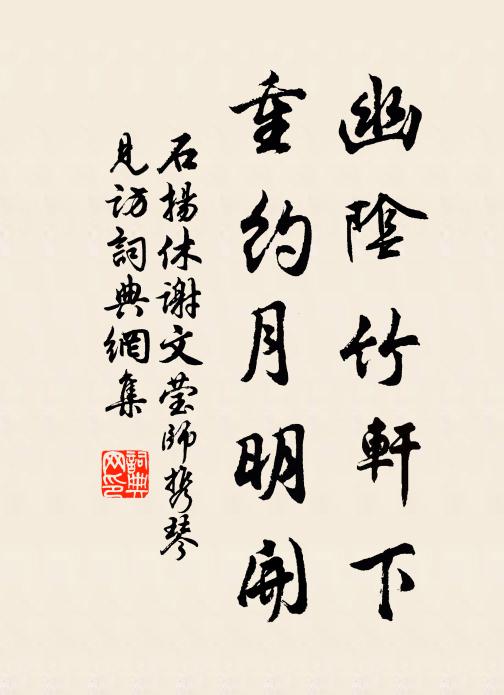 幽陰竹軒下
重約月明開
石揚休謝文瑩師攜琴
見訪詞典網集
詞典
网印